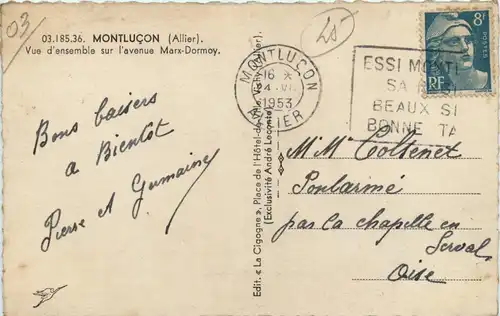 03
03.185.36. MONTLUÇON (Allier).
Vue d'ensemble sur l'avenue Marx-Dormoy.
Bons baisers
a Bientot
Pierre et Germaine
Edit. « La Cigogne », Place de l'Hôtel-de-Ville, Vichy (Allier).
(Exclusivité André Leconte)
MONTLUÇON
16 *
1953
ALLIER
8F
POSTES
RF
ESSI MONT
SA
BEAUX SI
BONNE TA
M. Mme
par la chapelle en
Serval
Oise